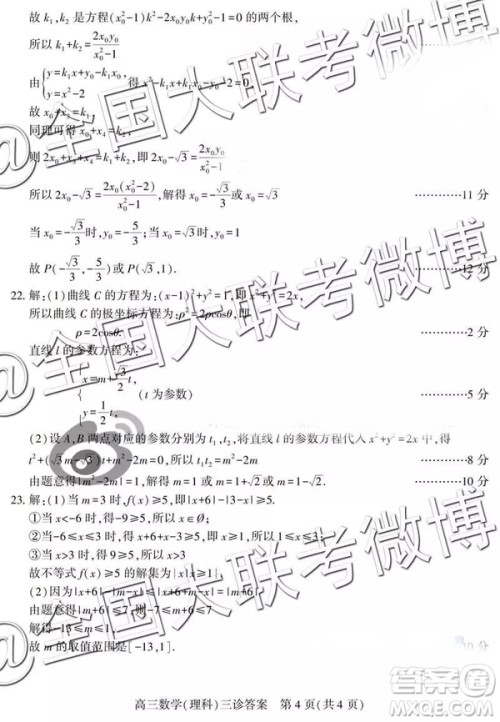 故 k₁, k₂ 是方程(x₀²-1)k²-2x₀y₀k+y₀²-1=0 的两个根,
所以 k₁+k₂=2x₀y₀/(x₀²-1)
由{y=k₁x+y₀-k₁x₀ y=x²-2 得 x²-k₁x+k₁x₀-y₀-2=0
故 x₀+x₃=k₁
同理可得 x₀+x₄=k₂
则 2x₀+x₃+x₄=k₁+k₂,即 2x₀-√3=2x₀y₀/(x₀²-1)
所以 2x₀-√3=2x₀(x₀²-2)/(x₀²-1),解得 x₀=-√3/3或 x₀=√3 …………11 分
当 x₀=-√3/3时,y₀=-5/3;当 x₀=√3时,y₀=1
故 P(-√3/3,-5/3)或 P(√3,1). …………12 分
22. 解:(1)曲线 C 的方程为:(x-1)²+y²=1,即 x²+y²=2x,
所以曲线 C 的极坐标方程为:ρ²=2ρcosθ,即
ρ=2cosθ. …………2 分
直线 l 的参数方程为:
{x=m+√3/2 t, y=1/2 t, (t 为参数) …………5 分
(2)设 A,B 两点对应的参数分别为 t₁,t₂,将直线 l 的参数方程代入 x²+y²=2x 中,得
t²+(√3m-√3)t+m²-2m=0,所以 t₁t₂=m²-2m …………8 分
由题意得|m²-2m|=1,解得 m=1或 m=1+√2或 m=1-√2. …………10 分
23. 解:(1)当 m=3 时,f(x)≥5,即|x+6|-|3-x|≥5.
①当 x<-6 时,得-9≥5,所以 x∈∅;
②当-6≤x≤3 时,得 x+6+x-3≥5,所以 1≤x≤3;
③当 x>3 时,得 9≥5,所以 x>3.
故不等式 f(x)≥5 的解集为{x|x≥1}.
(2)因为|x+6|-|m-x|≤|x+6+m-x|=|m+6|,
由题意得|m+6|≤7,则-7≤m+6≤7,
解得-13≤m≤1.
故 m 的取值范围是[-13,1]. 10 分
高三数学(理科)三诊答案 第 4 页(共 4 页)
@全国大联考微博
@全国大联考微博